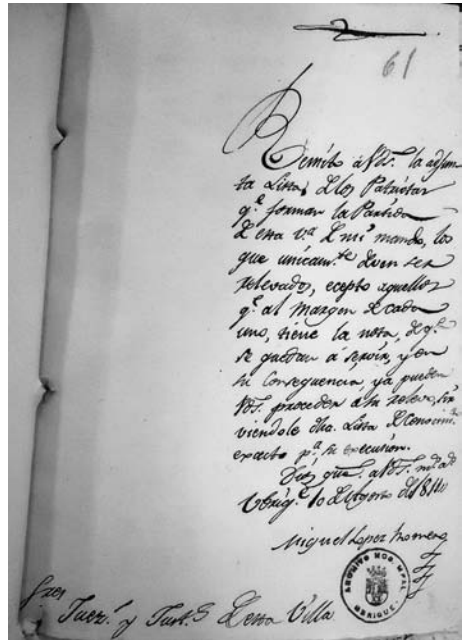 61
Remito a VSS. la adjun
ta Lista, de los Patriotas
q.e forman la Partida
de esta v.a de mi mando, los
que unicam.te deven ser
relevados, ecepto aquellos
q.e al margen de cada
uno, tiene la nota, de q.e
se quedan a servir, y en
su consequencia, ya pueden
VSS. proceder a su relevo, sir
viendole dha. Lista de conocim.to
exacto p.a su execusion.
Dios gue. a VSS. m.s a.s
Ubriq.e 10 de Agosto de 1811
Miguel Lopez Romero
ARCHIVO HCO. MPAL.
UBRIQUE
S.res Juez.s y Just.s de esta Villa